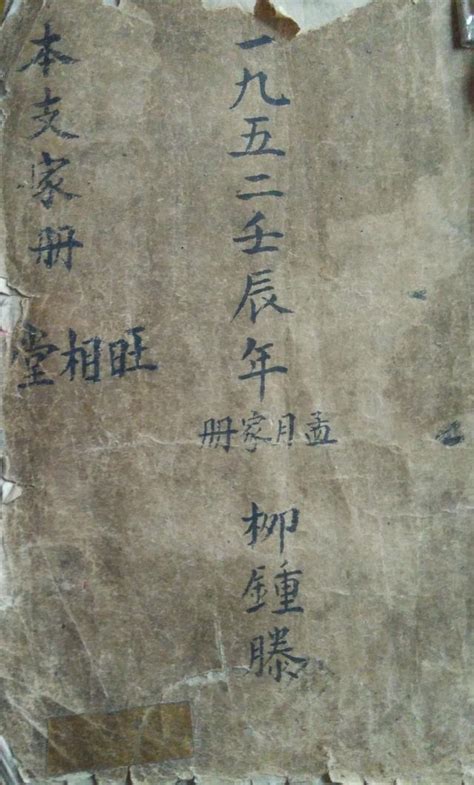 一九五二壬辰年
孟月家册
柳鍾滕
本支家册
旺相堂